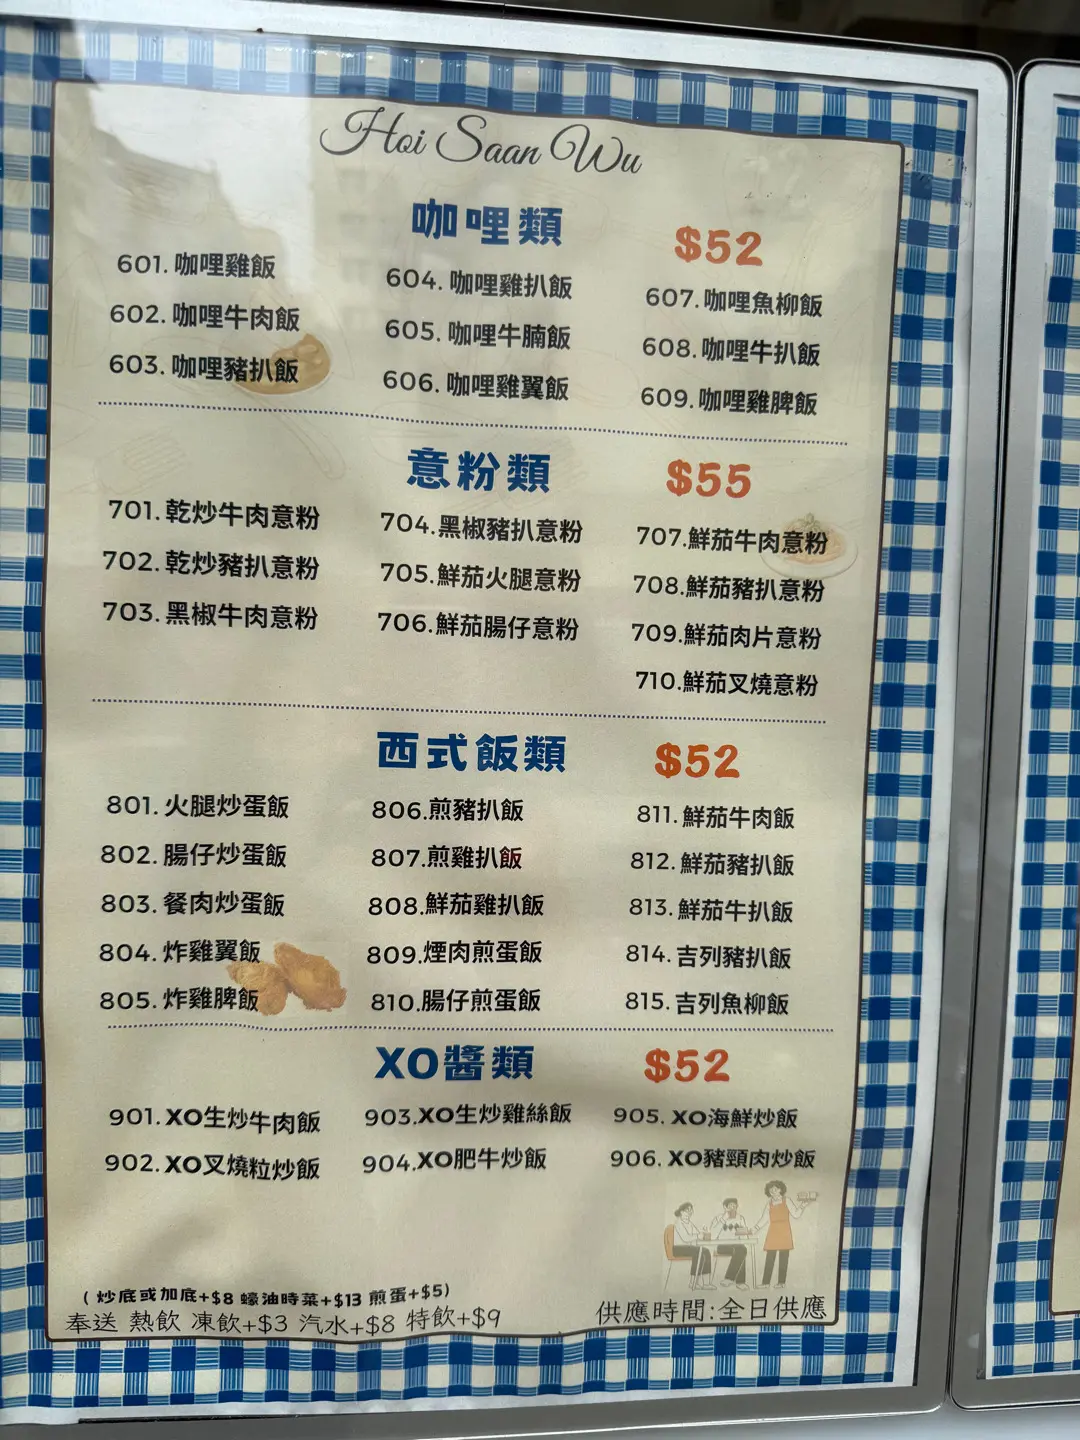 Hoi Saan Wu
咖哩類 $52
601. 咖哩雞飯
602. 咖哩牛肉飯
603. 咖哩豬扒飯
604. 咖哩雞扒飯
605. 咖哩牛腩飯
606. 咖哩雞翼飯
607. 咖哩魚柳飯
608. 咖哩牛扒飯
609. 咖哩雞脾飯
意粉類 $55
701. 乾炒牛肉意粉
702. 乾炒豬扒意粉
703. 黑椒牛肉意粉
704.黑椒豬扒意粉
705.鮮茄火腿意粉
706.鮮茄腸仔意粉
707.鮮茄牛肉意粉
708.鮮茄豬扒意粉
709.鮮茄肉片意粉
710.鮮茄叉燒意粉
西式飯類 $52
801. 火腿炒蛋飯
802. 腸仔炒蛋飯
803. 餐肉炒蛋飯
804. 炸雞翼飯
805. 炸雞脾飯
806.煎豬扒飯
807.煎雞扒飯
808.鮮茄雞扒飯
809.煙肉煎蛋飯
810.腸仔煎蛋飯
811. 鮮茄牛肉飯
812. 鮮茄豬扒飯
813. 鮮茄牛扒飯
814. 吉列豬扒飯
815. 吉列魚柳飯
XO醬類 $52
901. XO生炒牛肉飯
902. XO叉燒粒炒飯
903.XO生炒雞絲飯
904.XO肥牛炒飯
905. XO海鮮炒飯
906. XO豬頸肉炒飯
( 炒底或加底+$8 蠔油時菜+$13 煎蛋+$5)
奉送 熱飲 凍飲+$3 汽水+$8 特飲+$9
供應時間:全日供應